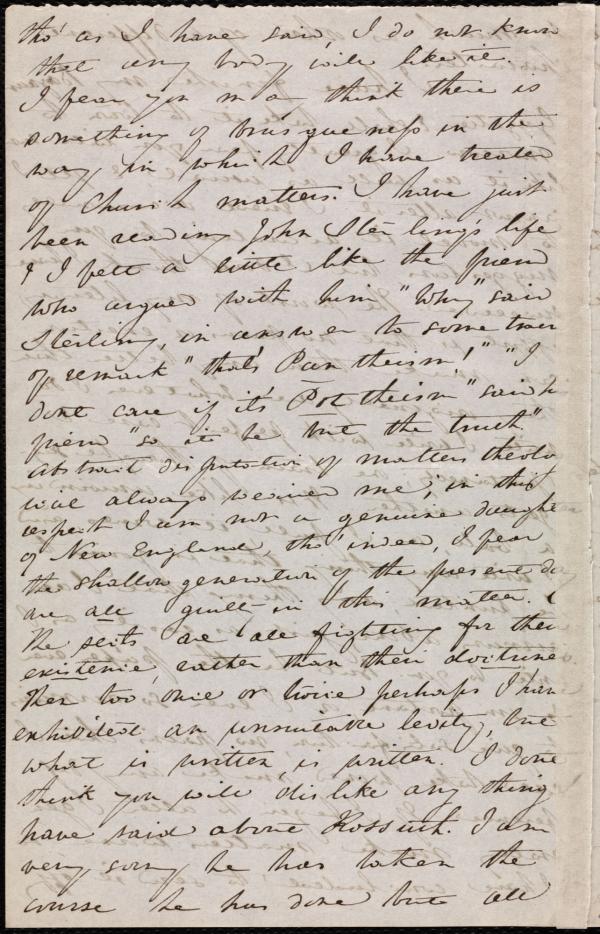 tho' as I have said, I do not know
that any body will like it.
I fear you may think there is
something of brusqueness in the
way in which I have treated
of Church matters. I have just
been reading John Sterling's life
& I felt a little like the friend
who argued with him "Why" said
Sterling, in answer to some
of remark "that's Pantheism!" "I
dont care if it's Pot theism" said h
friend "so it be but the truth"
Abstract disputation of matters theolo
ical always wearied me; in this
respect I am not a genuine daughte
of New England, tho' indeed, I fear
the shallow generation of the present day
are all guilty in this matter.
The sects are all fighting for their
existence, rather than their doctrine.
Then too once or twice perhaps I have
exhibited an unsuitable levity, but
what is written, is written. I dont
think you will dislike any thing
have said about Kossuth. I am
very sorry he has taken the
course he has done but all